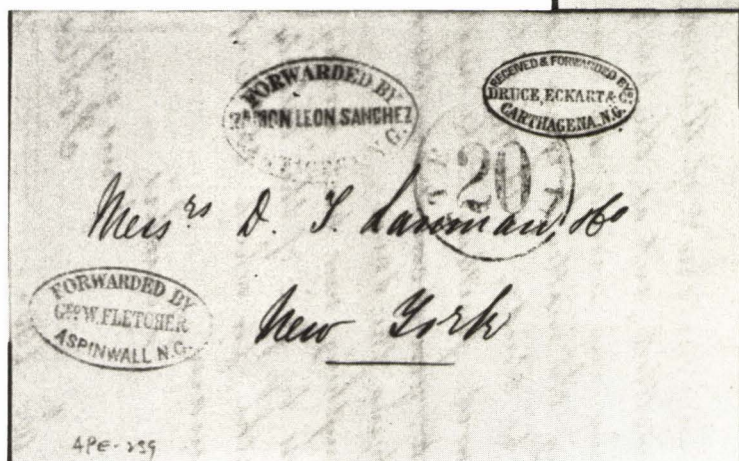 FORWARDED BY
RAMON LEON SANCHEZ
N.G.
RECEIVED & FORWARDED BY
DRUCE, ECKART & Co
CARTHAGENA, N.G.
STEAMSHIP
20
Messrs D. T. Lanman & Co
FORWARDED BY
Geo W. FLETCHER
ASPINWALL N.G.
New York
APE-299